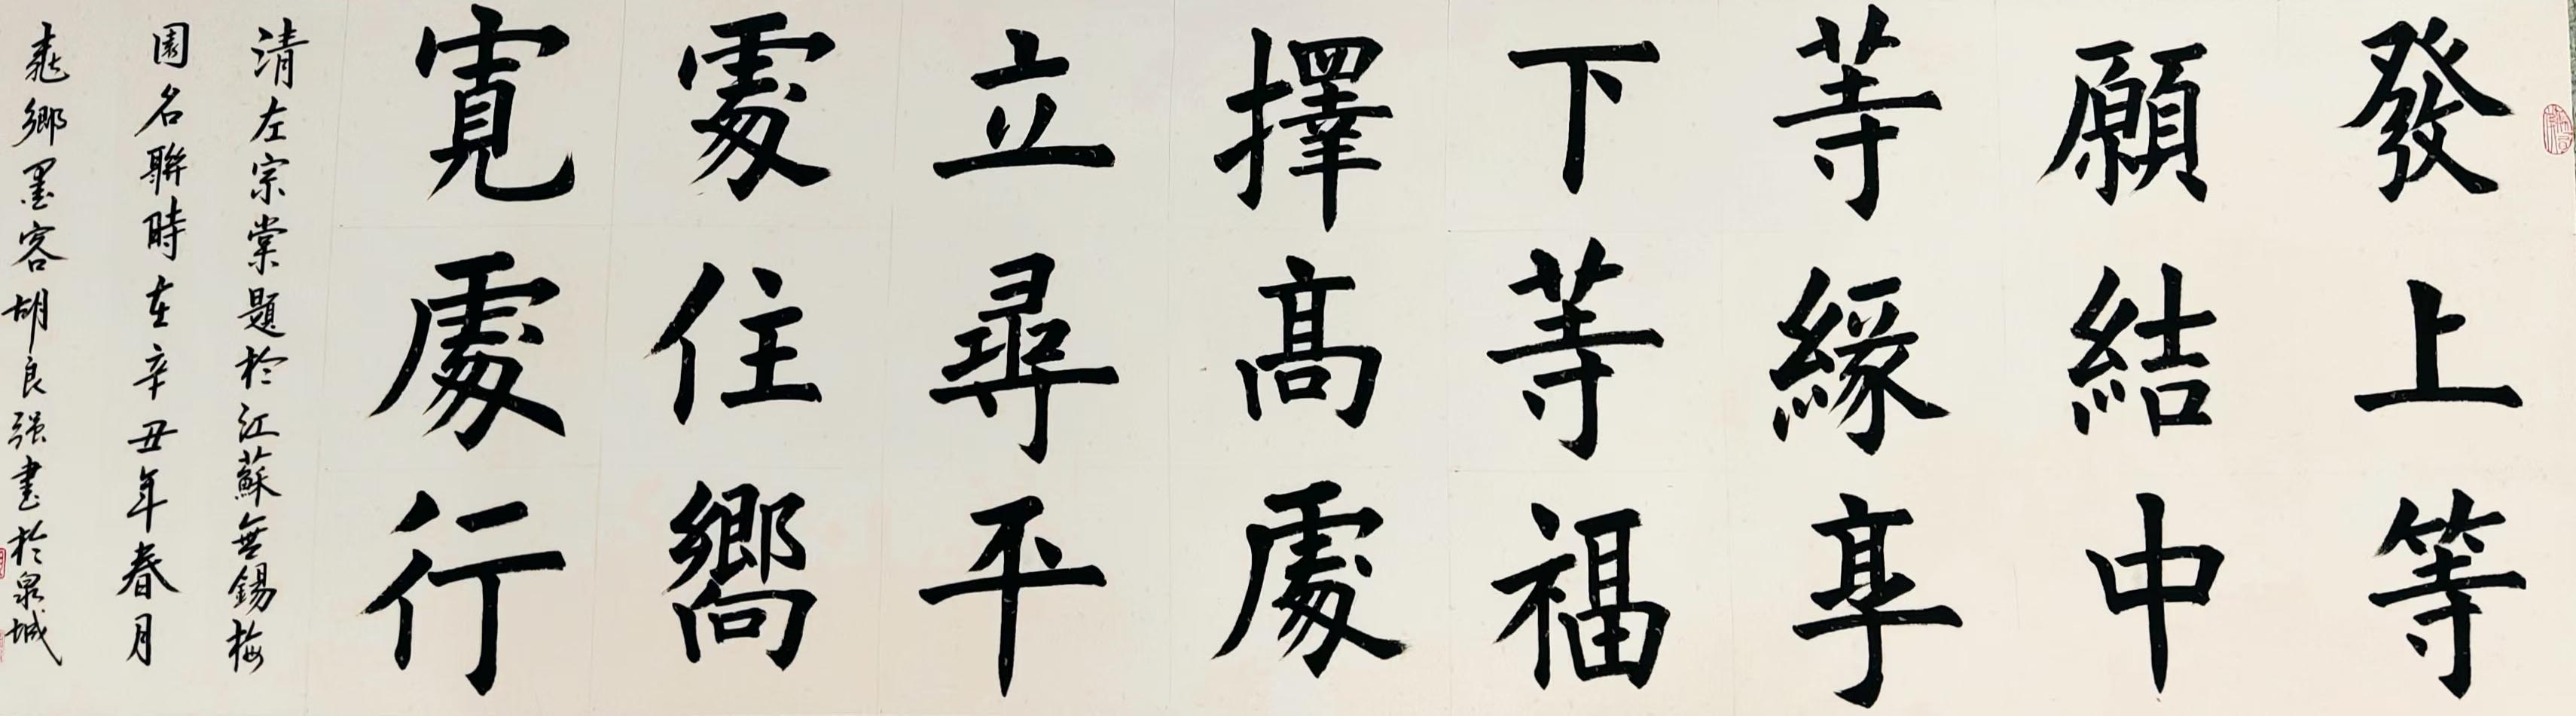 發上等
願結中
等緣享
下等福
擇髙處
立尋平
處住嚮
寬處行
清左宗棠題於江蘇無錫梅
園名聯時在辛丑年春月
鄉墨客胡良强書於泉城